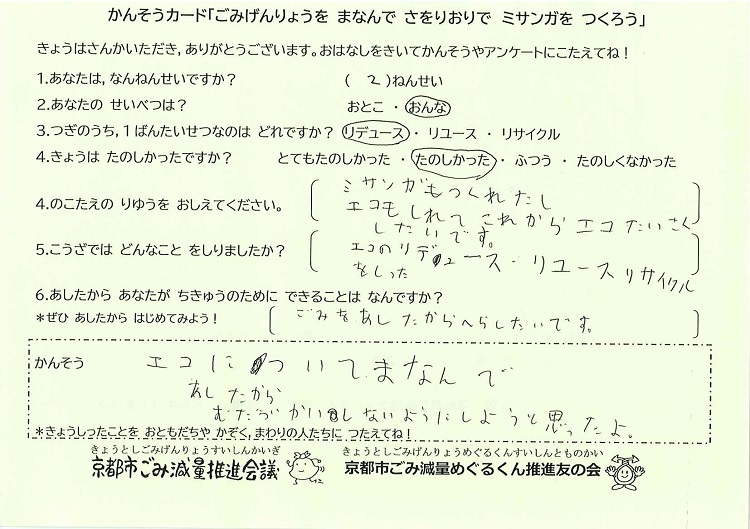 かんそうカード「ごみげんりょうを まなんで さをりおりで ミサンガを つくろう」
きょうはさんかいただき、ありがとうございます。おはなしをきいてかんそうやアンケートにこたえてね！
1.あなたは、なんねんせいですか？ （ 2 ）ねんせい
2.あなたの せいべつは？ おとこ ・ おんな
3.つぎのうち、1ばんたいせつなのは どれですか？ リデュース ・ リユース ・ リサイクル
4.きょうは たのしかったですか？ とてもたのしかった ・ たのしかった ・ ふつう ・ たのしくなかった
ミサンガもつくれたし
4.のこたえの りゆうを おしえてください。 エコもしれてこれからエコたいさく
したいです。
5.こうざでは どんなこと をしりましたか？ エコのリデュース・リユースリサイクル
をしった
6.あしたから あなたが ちきゅうのために できることは なんですか？
*ぜひ あしたから はじめてみよう！ ごみをあしたからへらしたいです。
かんそう エコについてまなんで
あしたから
むだづかいしないようにしようと思ったよ。
*きょうしったことを おともだちや かぞく、まわりの人たちに つたえてね！
きょうとしごみげんりょうすいしんかいぎ きょうとしごみげんりょうめぐるくんすいしんとものかい
京都市ごみ減量推進会議 京都市ごみ減量めぐるくん推進友の会